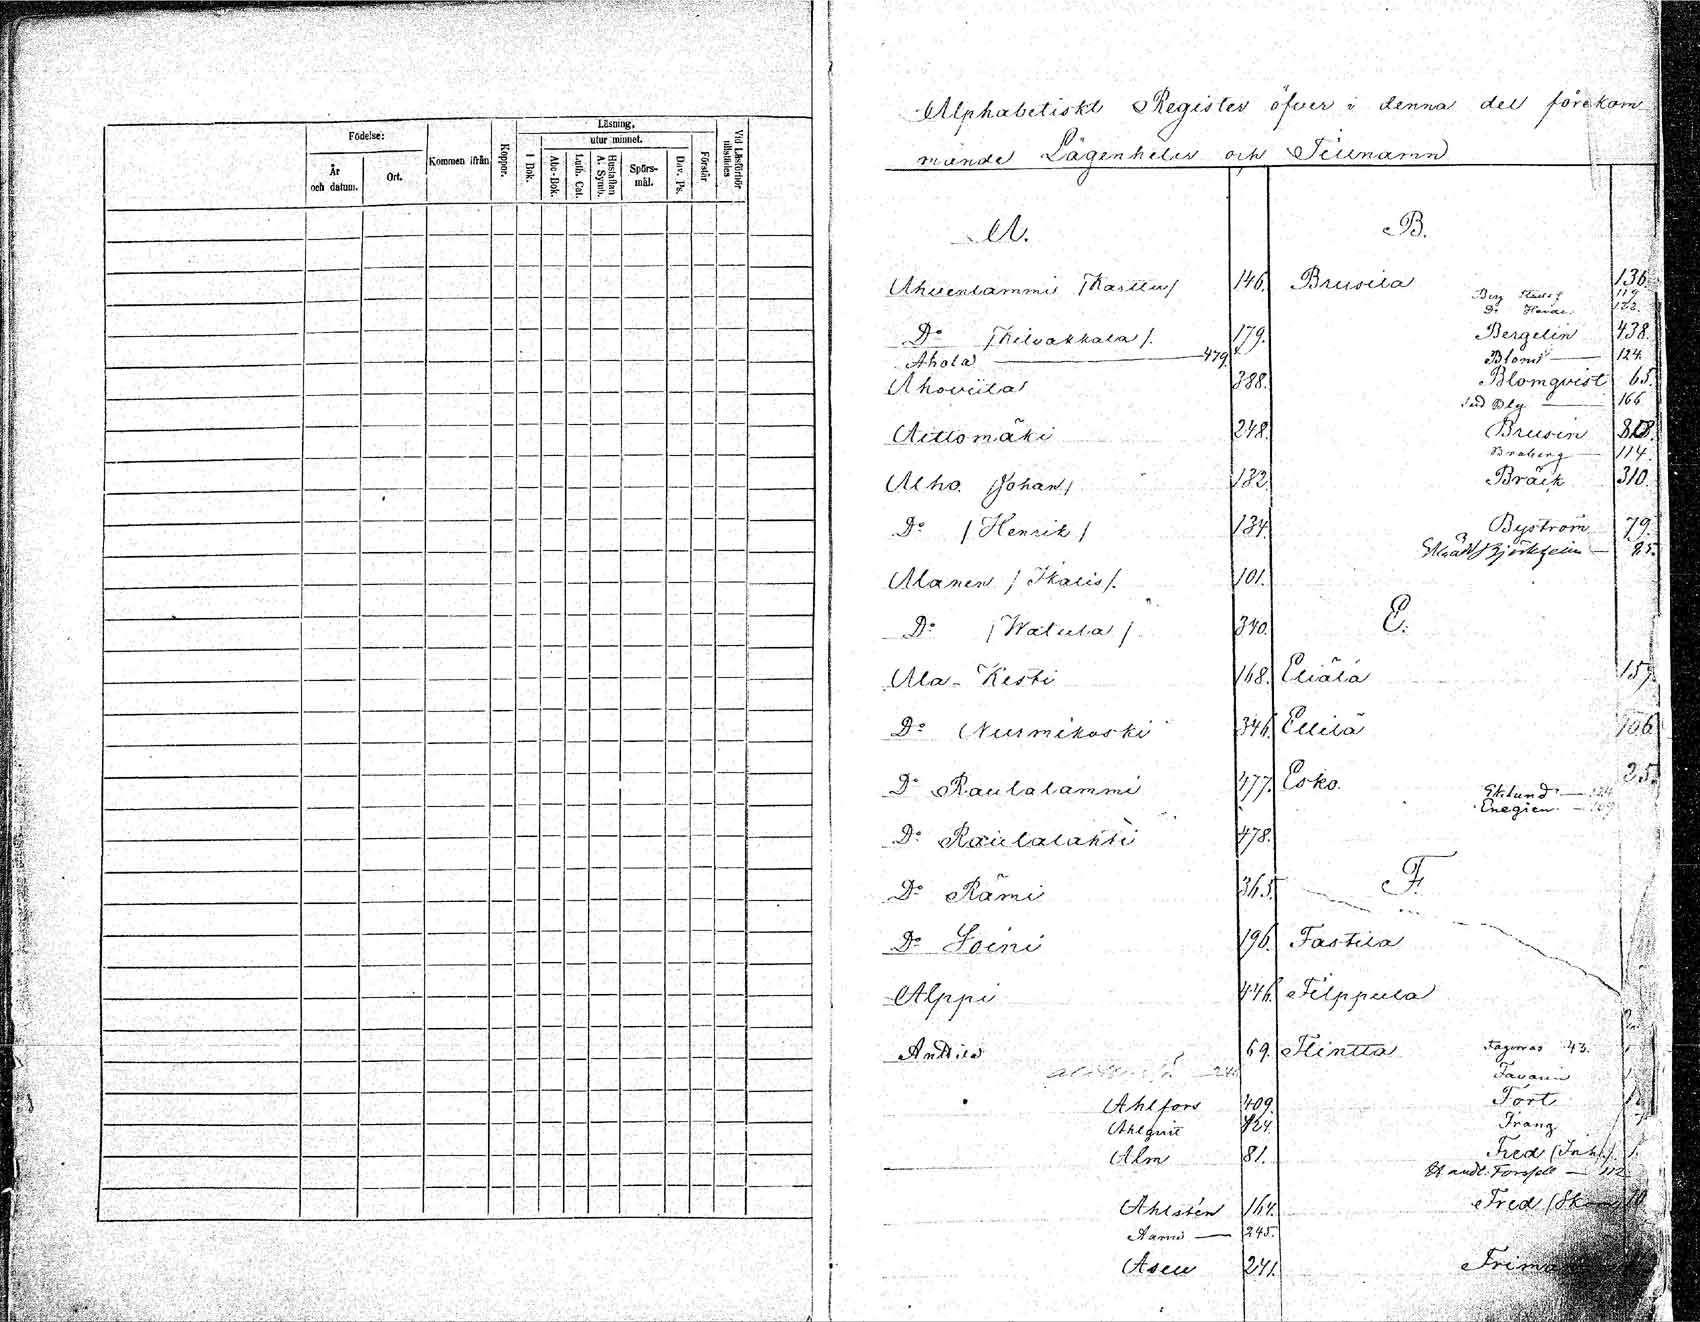 Födelse:
År och datum.
Ort.
Kommen ifrån
Koppor.
Läsning,
utur minnet.
I Bok.
Abc-Bok.
Luth. Cat.
Hustaflan A. Symb.
Spörs-mål.
Dav. Ps.
Förstår
Vid Läsförhör tillstädes
Alphabetiskt Register öfver i denna del förekom
mande Lägenheter och Tillnamn
A.
Ahvenlammi /Karttu/ 146.
Do /Kilvakkala/. 179.
Ahola 479.
Ahoviita 388.
Aittomäki 248.
Alho /Johan/ 132.
Do /Henrik/ 134.
Alanen /Ikalis/. 101.
Do /Watula/ 340.
Ala-Kesti 168.
Do Nurmikoski 346.
Do Raulalammi 477.
Do Raulalahti 478.
Do Rämi 365.
Do Soini 196.
Alppi 446.
Anttila 69.
Ahlfors 409.
Ahlqvist 124.
Alm 81.
Ahlstén 164.
Aarni 245.
Asen 241.
B.
Brusila 136.
Berg 119
Do 122.
Bergelin 438.
Blom 124.
Blomqvist 65.
166
Brusin
Broberg 114.
Bräik 310.
Byström 79.
Björkheim 85.
E.
Eliälä 157.
Ellilä 106
Esko. 25.
Eklund
Enegren
F.
Fastila
Filppula
Flintta
Fagerroos 43.
Favorin
Fort
Franz
Fred (Inh.)
Handl. Forssell 112
Fred (Skom
Friman